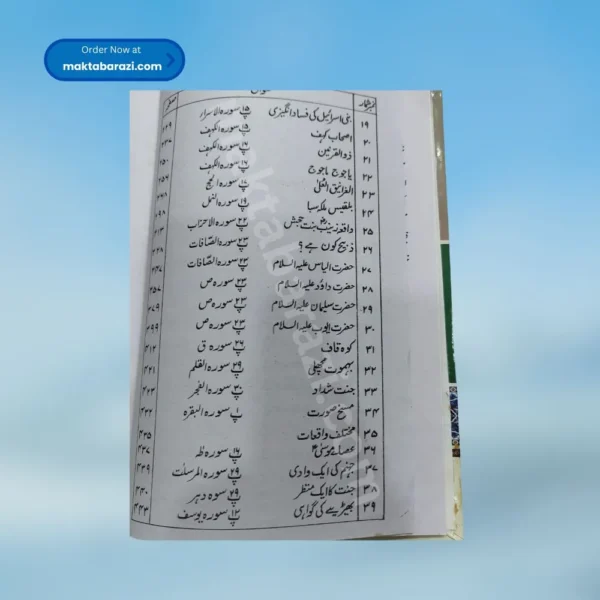 Order Now at
maktabarazi.com
نمبر شمار
۱۹ بنی اسرائیل کی فساد انگیزی پ ۱۵ سورہ الاسراء
۲۰ اصحاب کہف پ ۱۵ سورہ الکہف
۲۱ ذوالقرنین پ ۱۶ سورہ الکہف
۲۲ یاجوج ماجوج پ ۱۶ سورہ الکہف
۲۳ الغرانیق العلیٰ پ ۱۷ سورہ الحج
۲۴ بلقیس ملکہ سبا پ ۱۹ سورہ النمل
۲۵ واقعہ زینبؓ بنت جحش پ ۲۲ سورہ الاحزاب
۲۶ ذبیح کون ہے؟ پ ۲۳ سورہ الصافات
۲۷ حضرت الیاس علیہ السلام پ ۲۳ سورہ الصافات
۲۸ حضرت داؤد علیہ السلام پ ۲۳ سورہ ص ۳۵۷
۲۹ حضرت سلیمان علیہ السلام پ ۲۳ سورہ ص
۳۰ حضرت ایوب علیہ السلام پ ۲۳ سورہ ص ۳۹۹
۳۱ کوہ قاف پ ۲۶ سورہ ق ۴۱۲
۳۲ بہموت مچھلی پ ۲۹ سورہ القلم ۴۲۱
۳۳ جنت شداد پ ۳۰ سورہ الفجر ۴۲۳
۳۴ مسخ صورت پ ۱ سورہ البقرہ ۴۳۲
۳۵ مختلف واقعات ۴۳۵
۳۶ عصاء موسیٰؑ پ ۱۶ سورہ طہ ۴۳۷
۳۷ جہنم کی ایک وادی پ ۲۹ سورہ المرسلٰت ۴۳۹
۳۸ جنت کا ایک منظر پ ۲۹ سوہ دہر ۴۴۰
۳۹ بھیڑیے کی گواہی پ ۱۲ سورہ یوسف ۴۴۳
maktabarazi.com